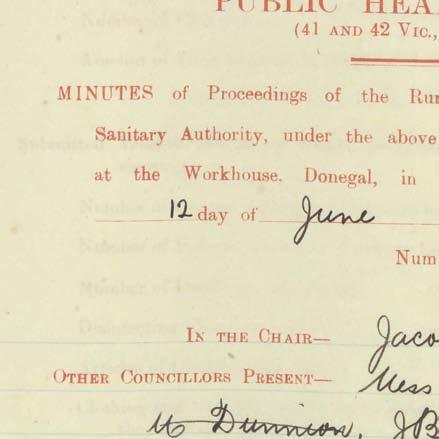 PUBLIC HEA
(41 AND 42 VIC.,
MINUTES of Proceedings of the Rur
Sanitary Authority, under the above
at the Workhouse. Donegal, in
12 day of June
Num
IN THE CHAIR— Jaco
OTHER COUNCILLORS PRESENT— Mess
Dunnion, JB